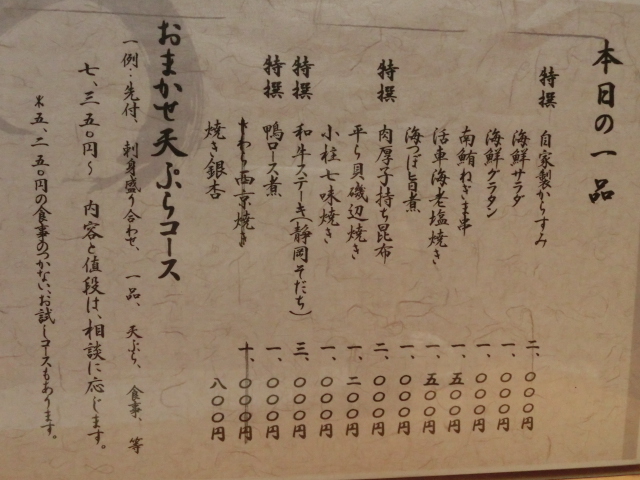 本日の一品
特撰 自家製からすみ 二、〇〇〇円
海鮮サラダ 一、〇〇〇円
海鮮グラタン 一、〇〇〇円
南鮪ねぎま串 一、五〇〇円
活車海老塩焼き 一、五〇〇円
海つぼ旨煮 一、〇〇〇円
特撰 肉厚子持ち昆布 二、〇〇〇円
平ら貝磯辺焼き 一、二〇〇円
小柱七味焼き 一、〇〇〇円
特撰 和牛ステーキ(静岡そだち) 三、〇〇〇円
特撰 鴨ロース煮 一、〇〇〇円
さわら西京焼き 一、〇〇〇円
焼き銀杏 八〇〇円
おまかせ天ぷらコース
一例:先付、刺身盛り合わせ、一品、天ぷら、食事、等
七、三五〇円〜 内容と値段は、相談に応じます。
※五、二五〇円の食事のつかない、お試しコースもあります。